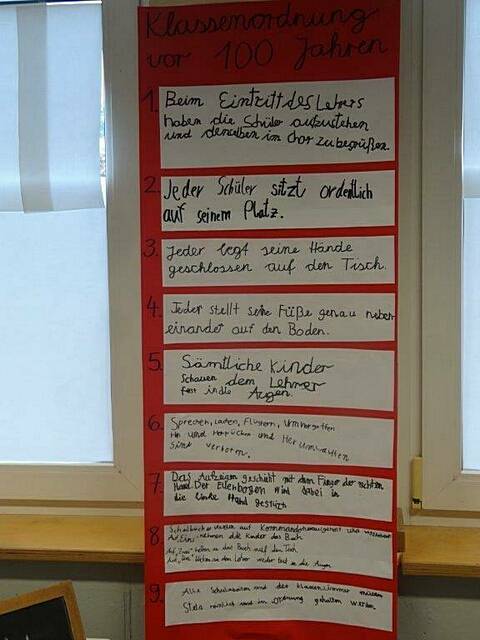 Klassenordnung
vor 100 Jahren
1. Beim Eintritt des Lehrers
haben die Schüler aufzustehen
und denselben im Chor zu begrüßen.
2. Jeder Schüler sitzt ordentlich
auf seinem Platz.
3. Jeder legt seine Hände
geschlossen auf den Tisch.
4. Jeder stellt seine Füße genau neben
einander auf den Boden.
5. Sämtliche Kinder
schauen dem Lehrer
fest in die Augen.
6. Sprechen, Lachen, Flüstern,
Hin und und Herum
sind
7. Das Aufzeigen geschieht mit dem Finger der rechten
Hand. Der Ellenbogen wird dabei in
die linke Hand gestützt
8. Schulbücher werden auf Kommando
Auf „Eins" nehmen die Kinder das Buch
Auf „Zwei" das Buch auf den Tisch
den Lehrer wieder fest in die Augen
9. Alle und des Klassenzimmer müssen
Stets und in Ordnung gehalten werden